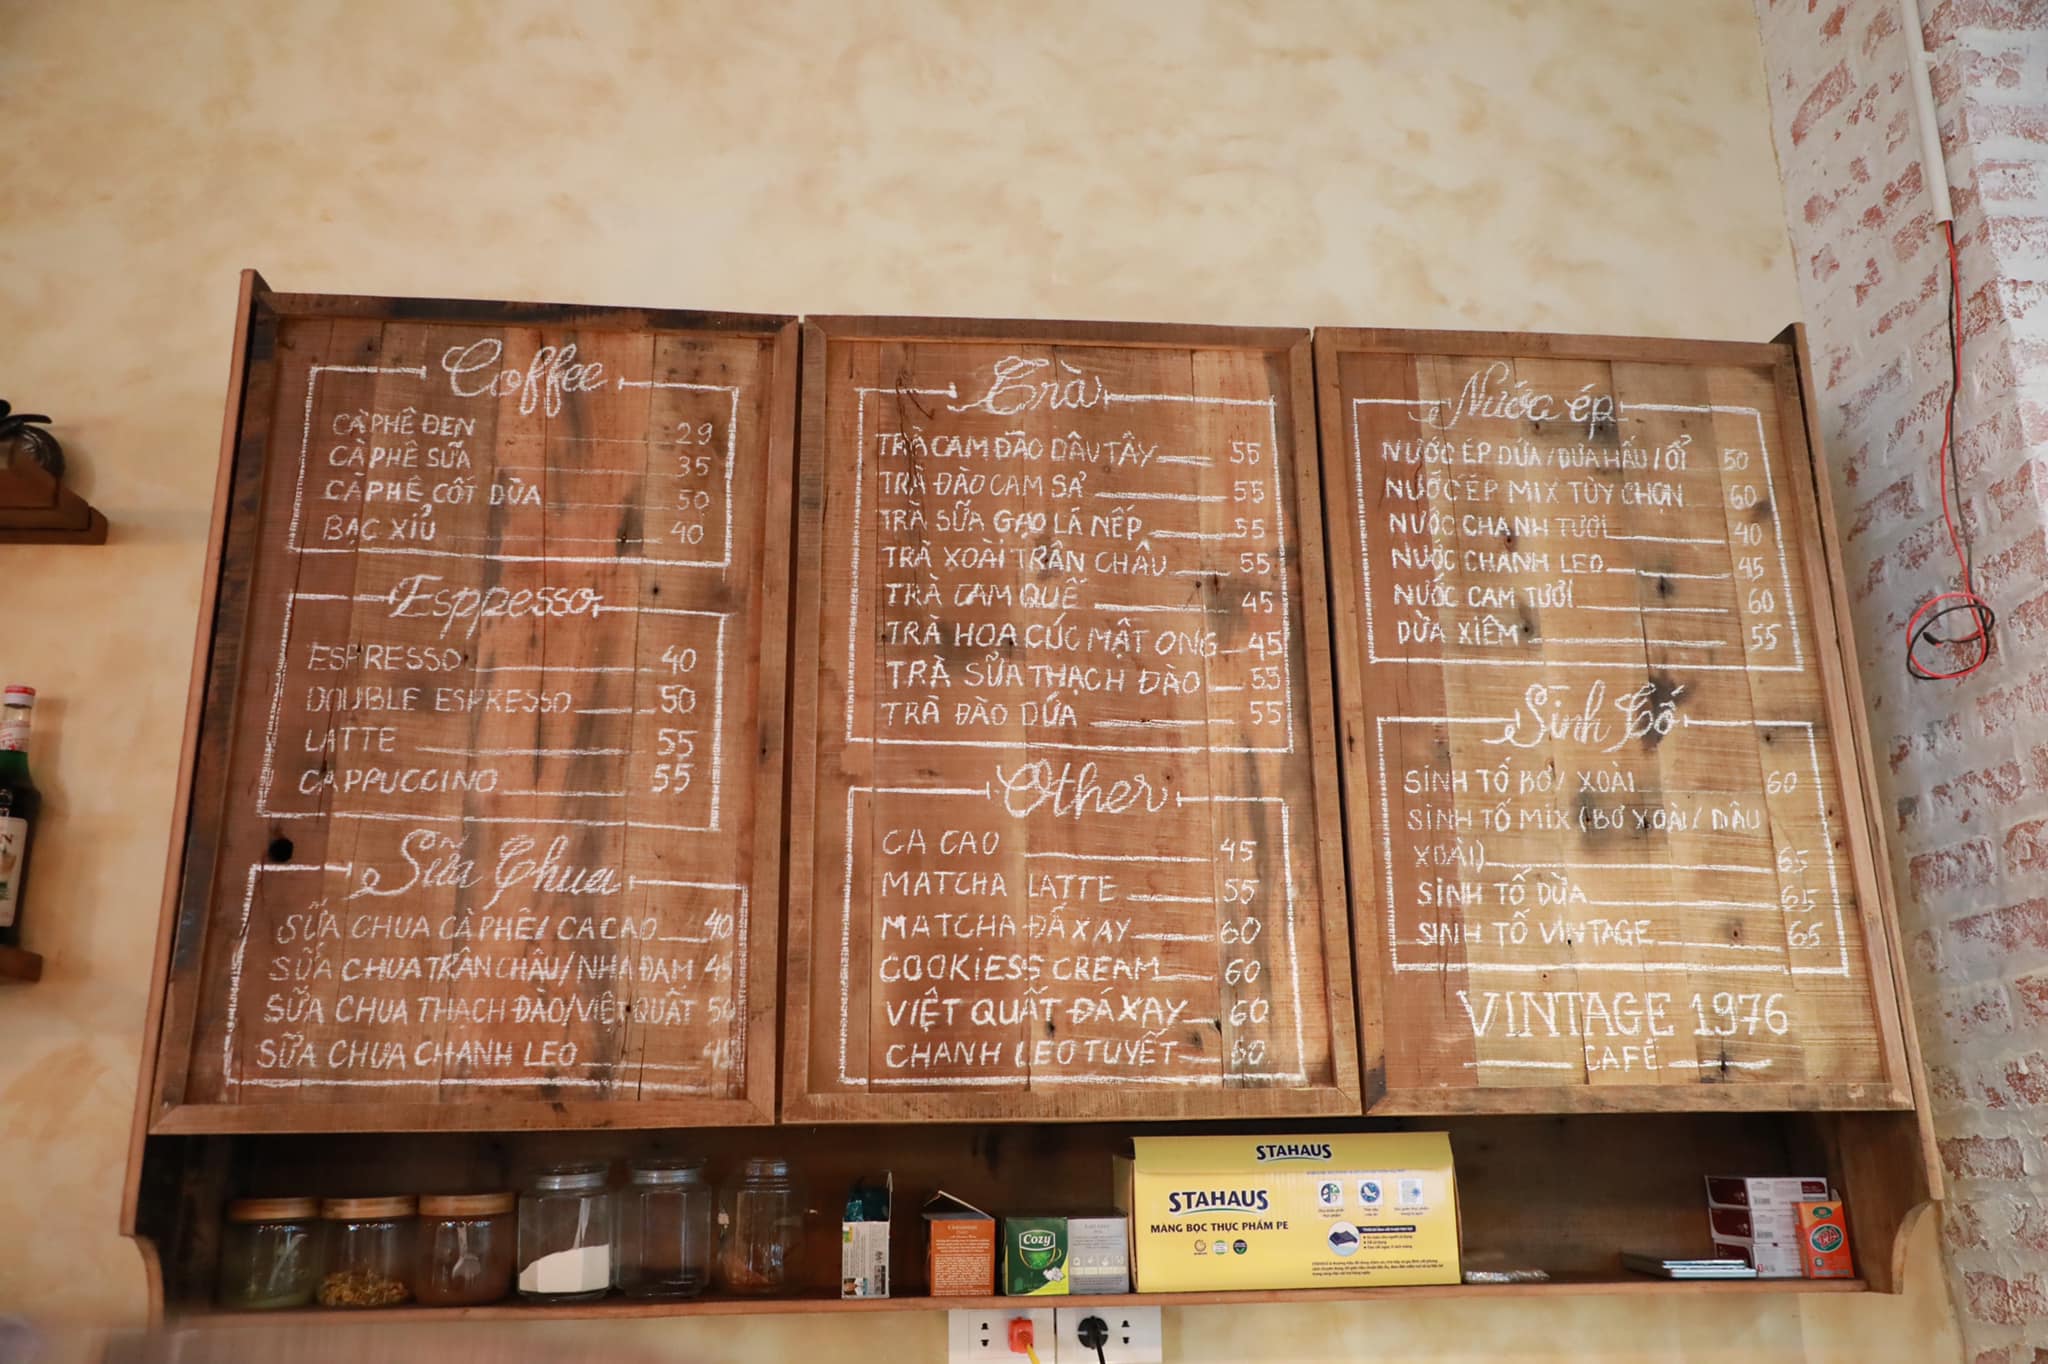 Coffee
CÀ PHÊ ĐEN 29
CÀ PHÊ SỮA 35
CÀ PHÊ CỐT DỪA 50
BẠC XỈU 40
Espresso
ESPRESSO 40
DOUBLE ESPRESSO 50
LATTE 55
CAPPUCCINO 55
Sữa Chua
SỮA CHUA CÀ PHÊ/ CA CAO 40
SỮA CHUA TRÂN CHÂU/NHA ĐAM 45
SỮA CHUA THẠCH ĐÀO/VIỆT QUẤT 50
SỮA CHUA CHANH LEO 45
Trà
TRÀ CAM ĐÀO DÂU TÂY 55
TRÀ ĐÀO CAM SẢ 55
TRÀ SỮA GẠO LÁ NẾP 55
TRÀ XOÀI TRÂN CHÂU 55
TRÀ CAM QUẾ 45
TRÀ HOA CÚC MẬT ONG 45
TRÀ SỮA THẠCH ĐÀO 55
TRÀ ĐÀO DỨA 55
Other
CA CAO 45
MATCHA LATTE 55
MATCHA ĐÁ XAY 60
COOKIESS CREAM 60
VIỆT QUẤT ĐÁ XAY 60
CHANH LEO TUYẾT 60
Nước ép
NƯỚC ÉP DỨA/DƯA HẤU/ỔI 50
NƯỚC ÉP MIX TÙY CHỌN 60
NƯỚC CHANH TƯƠI 40
NƯỚC CHANH LEO 45
NƯỚC CAM TƯƠI 60
DỪA XIÊM 55
Sinh Tố
SINH TỐ BƠ/ XOÀI 60
SINH TỐ MIX (BƠ XOÀI/ DÂU
XOÀI) 65
SINH TỐ DỪA 65
SINH TỐ VINTAGE 65
VINTAGE 1976
CAFÉ
STAHAUS
STAHAUS
MÀNG BỌC THỰC PHẨM PE
Cozy